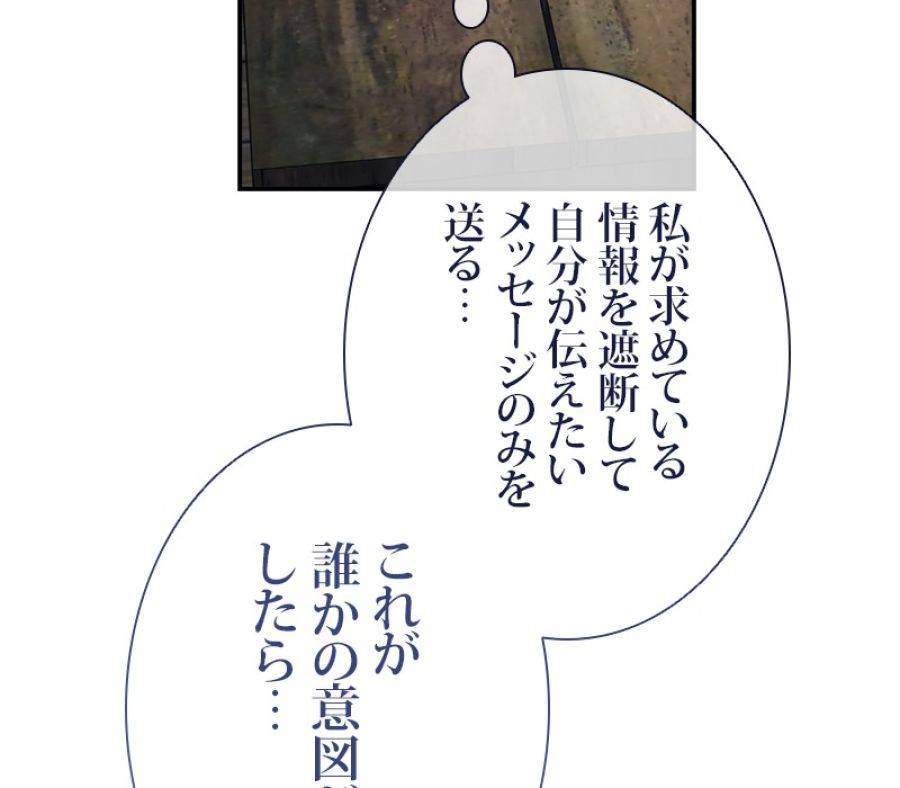 私が求めている
情報を遮断して
自分が伝えたい
メッセージのみを
送る…
これが
誰かの意図
したら…